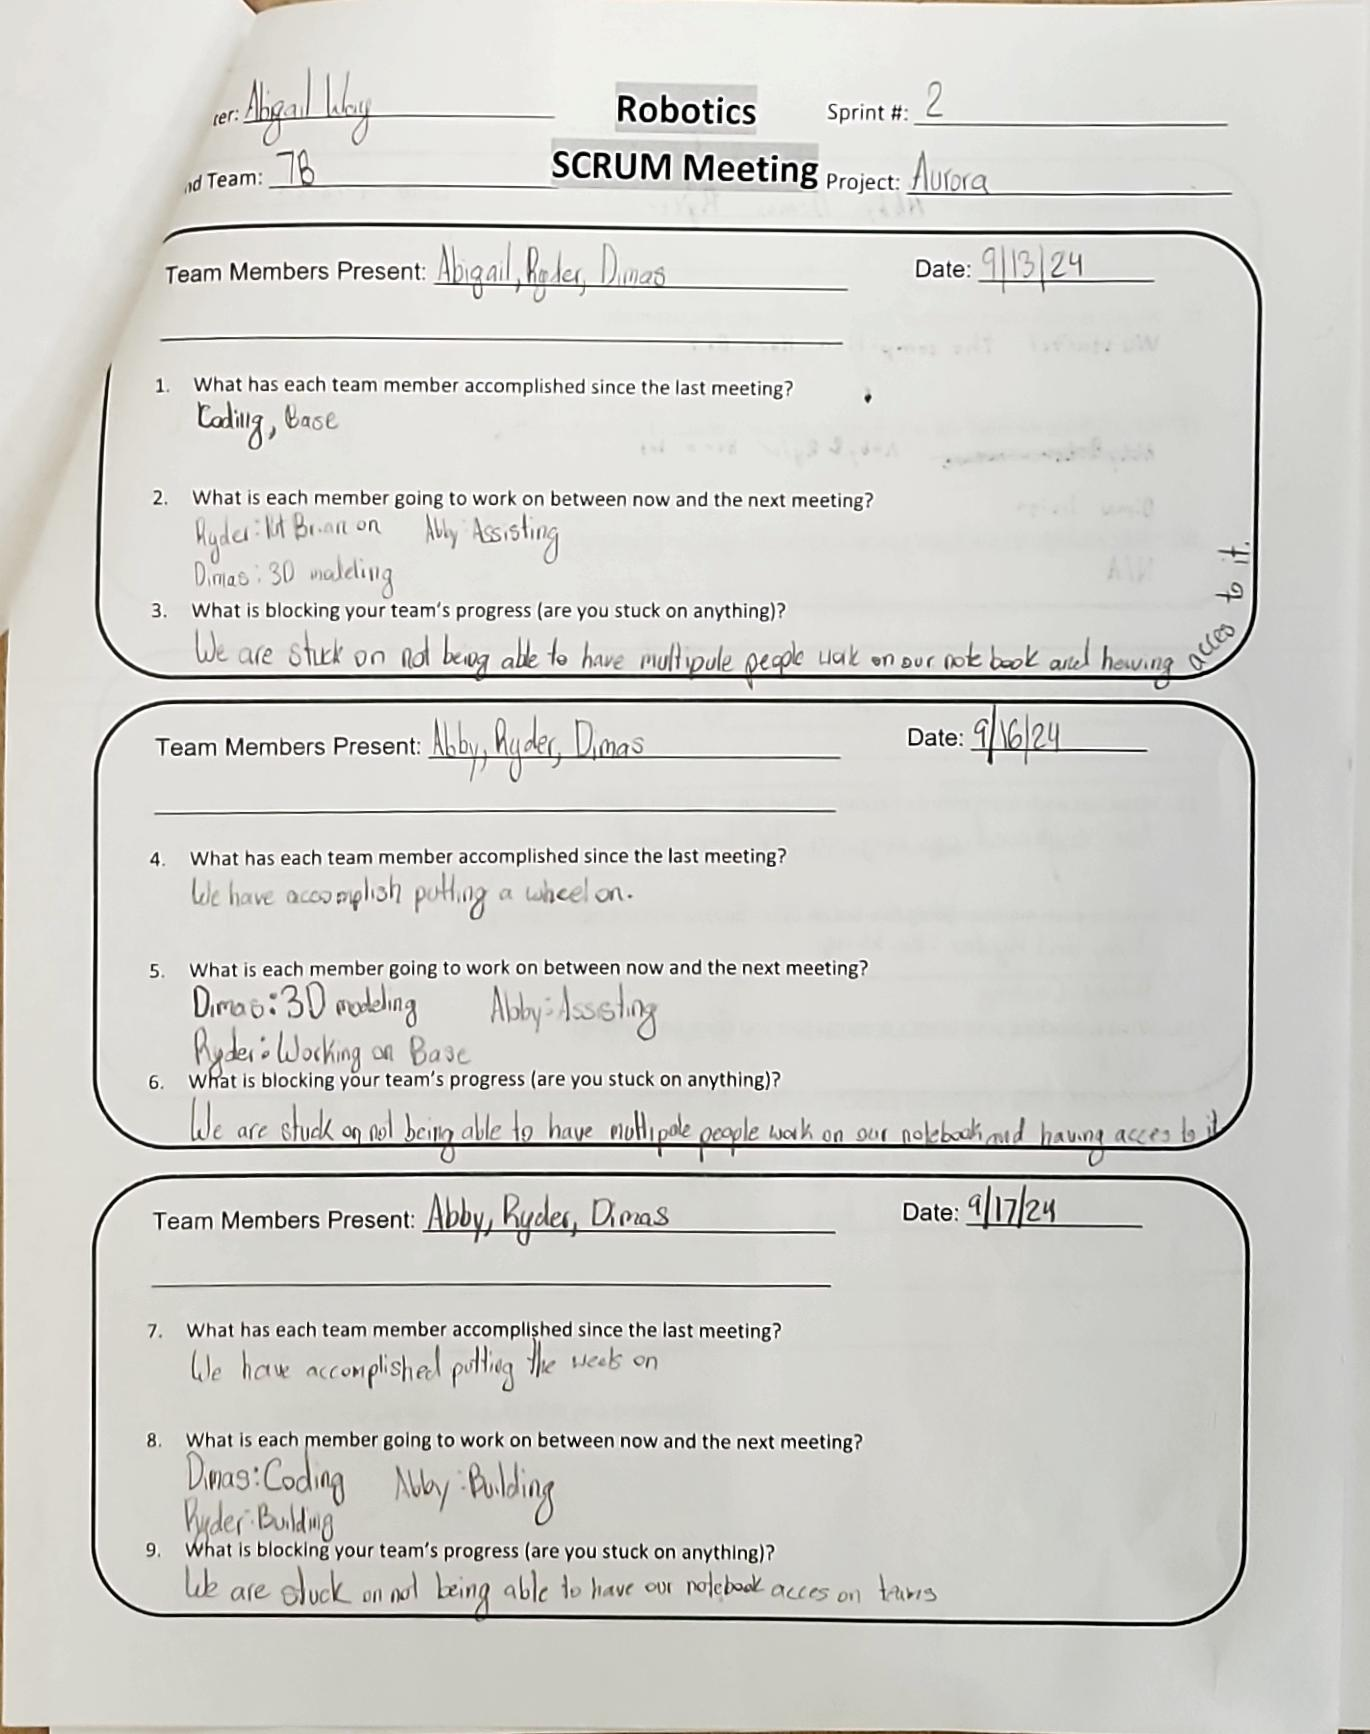 cer: Abigail Way
Robotics
Sprint #: 2
nd Team: 7B
SCRUM Meeting
Project: Aurora
Team Members Present: Abigail, Ryder, Dimas
Date: 9/13/24
1. What has each team member accomplished since the last meeting?
Coding, Base
2. What is each member going to work on between now and the next meeting?
Ryder: Put Brian on Abby: Assisting
Dimas: 3D modeling
3. What is blocking your team's progress (are you stuck on anything)?
We are stuck on not being able to have multipule people work on our note book and hewing acces to it
Team Members Present: Abby, Ryder, Dimas
Date: 9/16/24
4. What has each team member accomplished since the last meeting?
We have accomplish putting a wheel on.
5. What is each member going to work on between now and the next meeting?
Dimas: 3D modeling Abby: Assisting
Ryder: Working on Base
6. What is blocking your team's progress (are you stuck on anything)?
We are stuck on not being able to have multipole people work on our notebook and having acces to it
Team Members Present: Abby, Ryder, Dimas
Date: 9/17/24
7. What has each team member accomplished since the last meeting?
We have accomplished putting the on
8. What is each member going to work on between now and the next meeting?
Dimas: Coding Abby: Building
Ryder: Building
9. What is blocking your team's progress (are you stuck on anything)?
We are stuck on not being able to have our notebook acces on teams